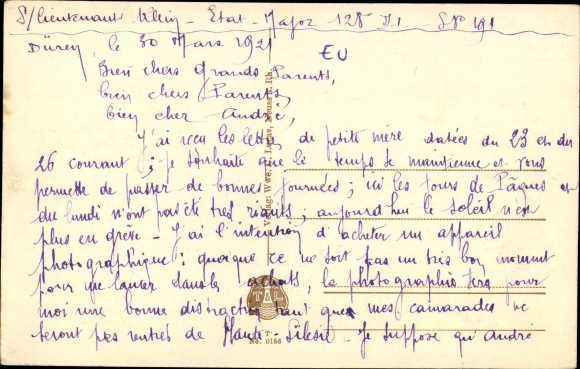 S/Lieutenant Klein - Etat-Major 128 D.I. - SP 191
Düren, le 30 Mars 1921
EU
Bien chers Grands Parents,
bien chers Parents,
bien cher André,
J'ai reçu les lettres de petite mère datées du 23 et du
26 courant ; je souhaite que le temps se maintienne et vous
permette de passer de bonnes journées ; ici les jours de Pâques et
du lundi n'ont pas été très riants ; aujourd'hui le soleil n'est
plus en grève - J'ai l'intention d'acheter un appareil
photographique : quoique ce ne soit pas un très bon moment
pour me lancer dans les achats, la photographie sera pour
moi une bonne distraction tant que mes camarades ne
seront pas rentrés de Haute-Silésie - Je suppose qu'André
Verlag: Wwe. Lucas, Neuss a. Rh.
T&L
No. 0156